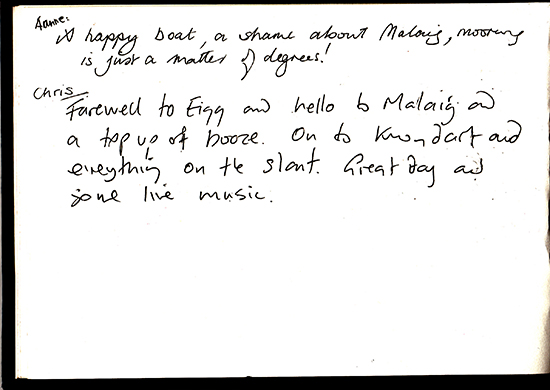 Hanne:
A happy boat, a shame about Malaig, mooring
is just a matter of degrees!
Chris
Farewell to Eigg and hello to Malaig and
a top up of booze. On to Knoydart and
everything on the slant. Great day and
some live music.